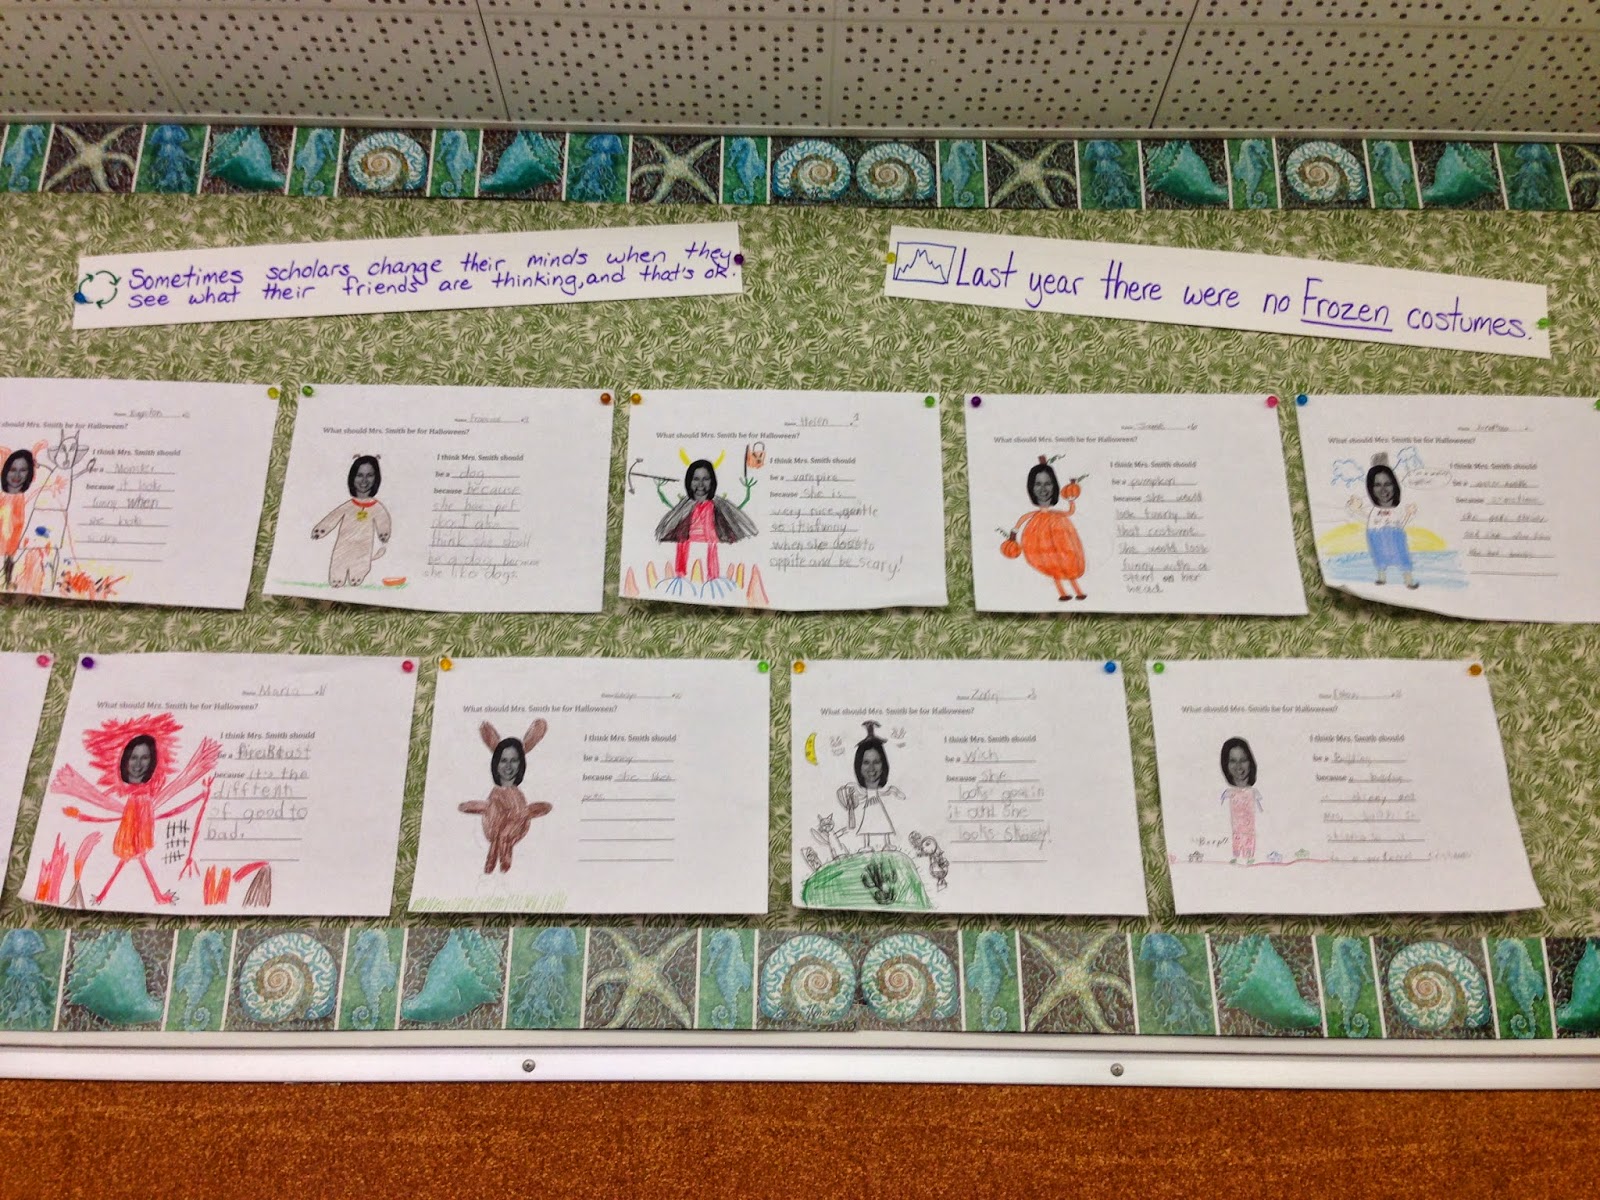 Sometimes scholars change their minds when they
see what their friends are thinking, and that's ok.
Last year there were no Frozen costumes.
What should Mrs. Smith be for Halloween?
I think Mrs. Smith should
be a Monster
because it look
funny when
we look
Name Francisco
What should Mrs. Smith be for Halloween?
I think Mrs. Smith should
be a dog
because because
she has pet
dog I also
think she shall
be a dog because
she like dogs
Name Helen
What should Mrs. Smith be for Halloween?
I think Mrs. Smith should
be a vampire
because she is
very nice, gentle
so it is funny
when she does to
oppite and be scary!
Name
What should Mrs. Smith be for Halloween?
I think Mrs. Smith should
be a pumpkin
because she would
look funny in
that costume
she would look
funny with a
stem on her
head.
Name Jonathan
What should Mrs. Smith be for Halloween?
I think Mrs. Smith should
be a
because sometimes
she
Name Maria
What should Mrs. Smith be for Halloween?
I think Mrs. Smith should
be a fireBeast
because it's the
diffrent
of good to
bad.
Name
What should Mrs. Smith be for Halloween?
I think Mrs. Smith should
be a bunny
because she
pets
Name Zain
What should Mrs. Smith be for Halloween?
I think Mrs. Smith should
be a Wich
because she
looks good in
it and she
looks skary!
Name
What should Mrs. Smith be for Halloween?
"Beep!!"
I think Mrs. Smith should
be a Building
because a building
is skinny and
Mrs. Smith is